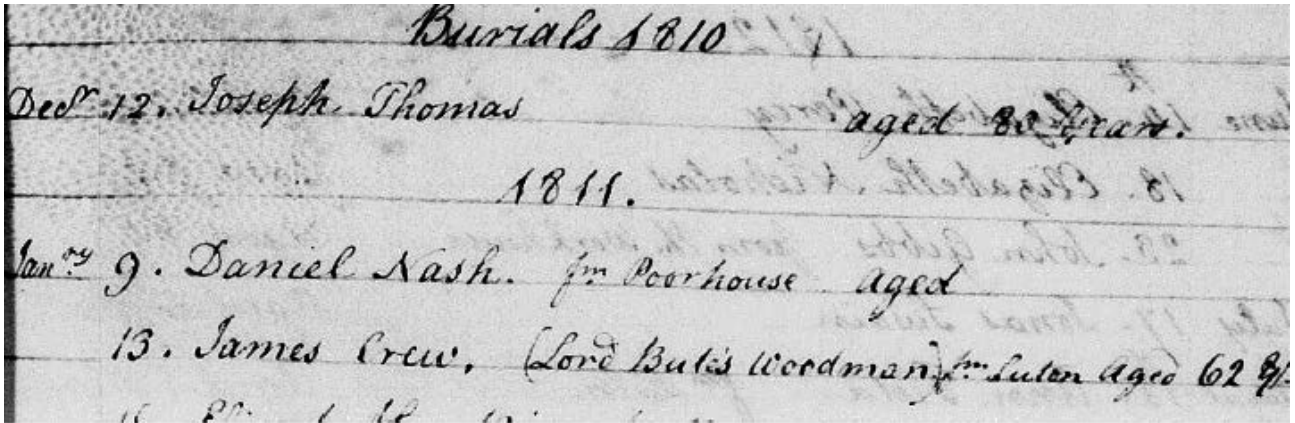 Burials 1810
Decr 12. Joseph Thomas aged Years.
1811.
Janry 9. Daniel Nash. fm Poorhouse aged
13. James Crew, (Lord Bute's Woodman) fm Luton Aged 62 Ys